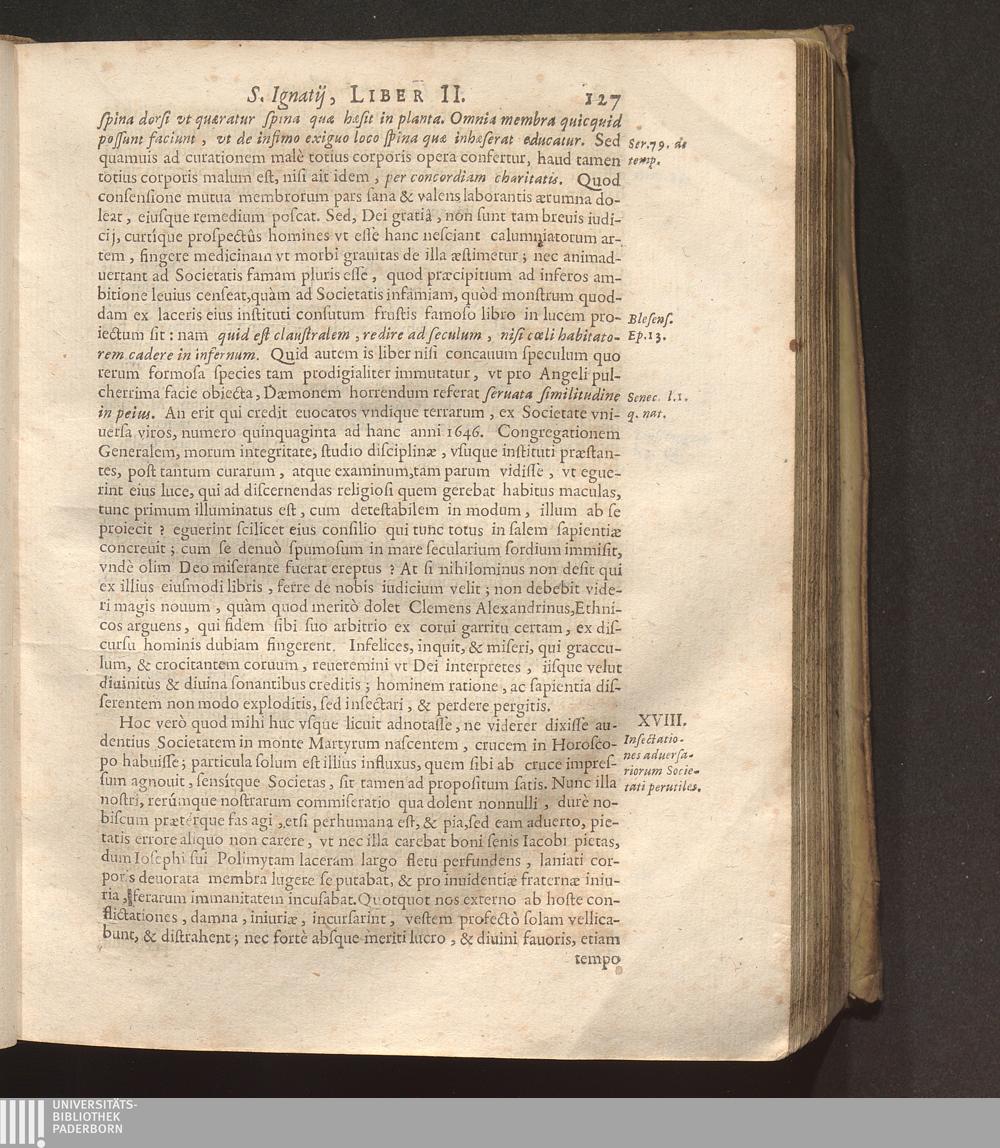 S. Ignatij, LIBER II. 127
spina dorsi vt quæratur spina quæ hæsit in planta. Omnia membra quicquid
possunt faciunt, vt de infimo exiguo loco spina quæ inhæserat educatur. Sed
Ser.79. de
quamuis ad curationem malè totius corporis opera confertur, haud tamen
temp.
totius corporis malum est, nisi ait idem, per concordiam charitatis. Quod
consensione mutua membrorum pars sana & valens laborantis ærumna do-
leat, eiusque remedium poscat. Sed, Dei gratiâ, non sunt tam breuis iudi-
cij, curtíque prospectûs homines vt esse hanc nesciant calumniatorum ar-
tem, fingere medicinam vt morbi grauitas de illa æstimetur; nec animad-
uertant ad Societatis famam pluris esse, quod præcipitium ad inferos am-
bitione leuius censeat, quàm ad Societatis infamiam, quòd monstrum quod-
dam ex laceris eius instituti consutum frustis famoso libro in lucem pro-
Blesens.
iectum sit: nam quid est claustralem, redire ad seculum, nisi cœli habitato-
Ep.13.
rem cadere in infernum. Quid autem is liber nisi concauum speculum quo
rerum formosa species tam prodigialiter immutatur, vt pro Angeli pul-
cherrima facie obiecta, Dæmonem horrendum referat seruata similitudine
Senec. l.1.
in peius. An erit qui credit euocatos vndique terrarum, ex Societate vni-
q. nat.
uersa viros, numero quinquaginta ad hanc anni 1646. Congregationem
Generalem, morum integritate, studio disciplinæ, vsuque instituti præstan-
tes, post tantum curarum, atque examinum, tam parum vidisse, vt egue-
rint eius luce, qui ad discernendas religiosi quem gerebat habitus maculas,
tunc primum illuminatus est, cum detestabilem in modum, illum ab se
proiecit? eguerint scilicet eius consilio qui tunc totus in salem sapientiæ
concreuit; cum se denuò spumosum in mare secularium sordium immisit,
vndè olim Deo miserante fuerat ereptus? At si nihilominus non desit qui
ex illius eiusmodi libris, ferre de nobis iudicium velit; non debebit vide-
ri magis nouum, quàm quod meritò dolet Clemens Alexandrinus, Ethni-
cos arguens, qui fidem sibi suo arbitrio ex corui garritu certam, ex dis-
cursu hominis dubiam fingerent. Infelices, inquit, & miseri, qui graccu-
lum, & crocitantem coruum, reueremini vt Dei interpretes, iisque velut
diuinitùs & diuina sonantibus creditis; hominem ratione, ac sapientia dis-
serentem non modo exploditis, sed insectari, & perdere pergitis.
Hoc verò quod mihi huc vsque licuit adnotasse, ne viderer dixisse au-
XVIII.
dentius Societatem in monte Martyrum nascentem, crucem in Horosco-
Insectatio-
po habuisse; particula solum est illius influxus, quem sibi ab cruce impres-
nes aduersa-
sum agnouit, sensítque Societas, sit tamen ad propositum satis. Nunc illa
riorum Socie-
tati perutiles.
nostri, rerúmque nostrarum commiseratio qua dolent nonnulli, durè no-
biscum prætérque fas agi, etsi perhumana est, & pia, sed eam aduerto, pie-
tatis errore aliquo non carere, vt nec illa carebat boni senis Iacobi pietas,
dum Iosephi sui Polimytam laceram largo fletu perfundens, laniati cor-
poris deuorata membra lugere se putabat, & pro inuidentiæ fraternæ iniu-
ria, ferarum immanitatem incusabat. Quotquot nos externo ab hoste con-
flictationes, damna, iniuriæ, incursarint, vestem profectò solam vellica-
bunt, & distrahent; nec fortè absque meriti lucro, & diuini fauoris, etiam
tempo
UNIVERSITÄTS-
BIBLIOTHEK
PADERBORN